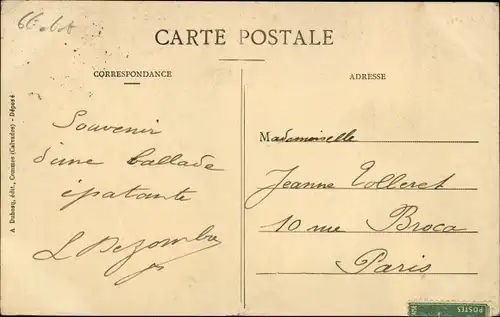 CARTE POSTALE
CORRESPONDANCE
ADRESSE
A. Dubosq, édit., Commes (Calvados) - Déposé
Souvenir
d'une ballade
épatante
L Dezomba
Mademoiselle
Jeanne Tolleret
10 rue Broca
Paris
POSTES